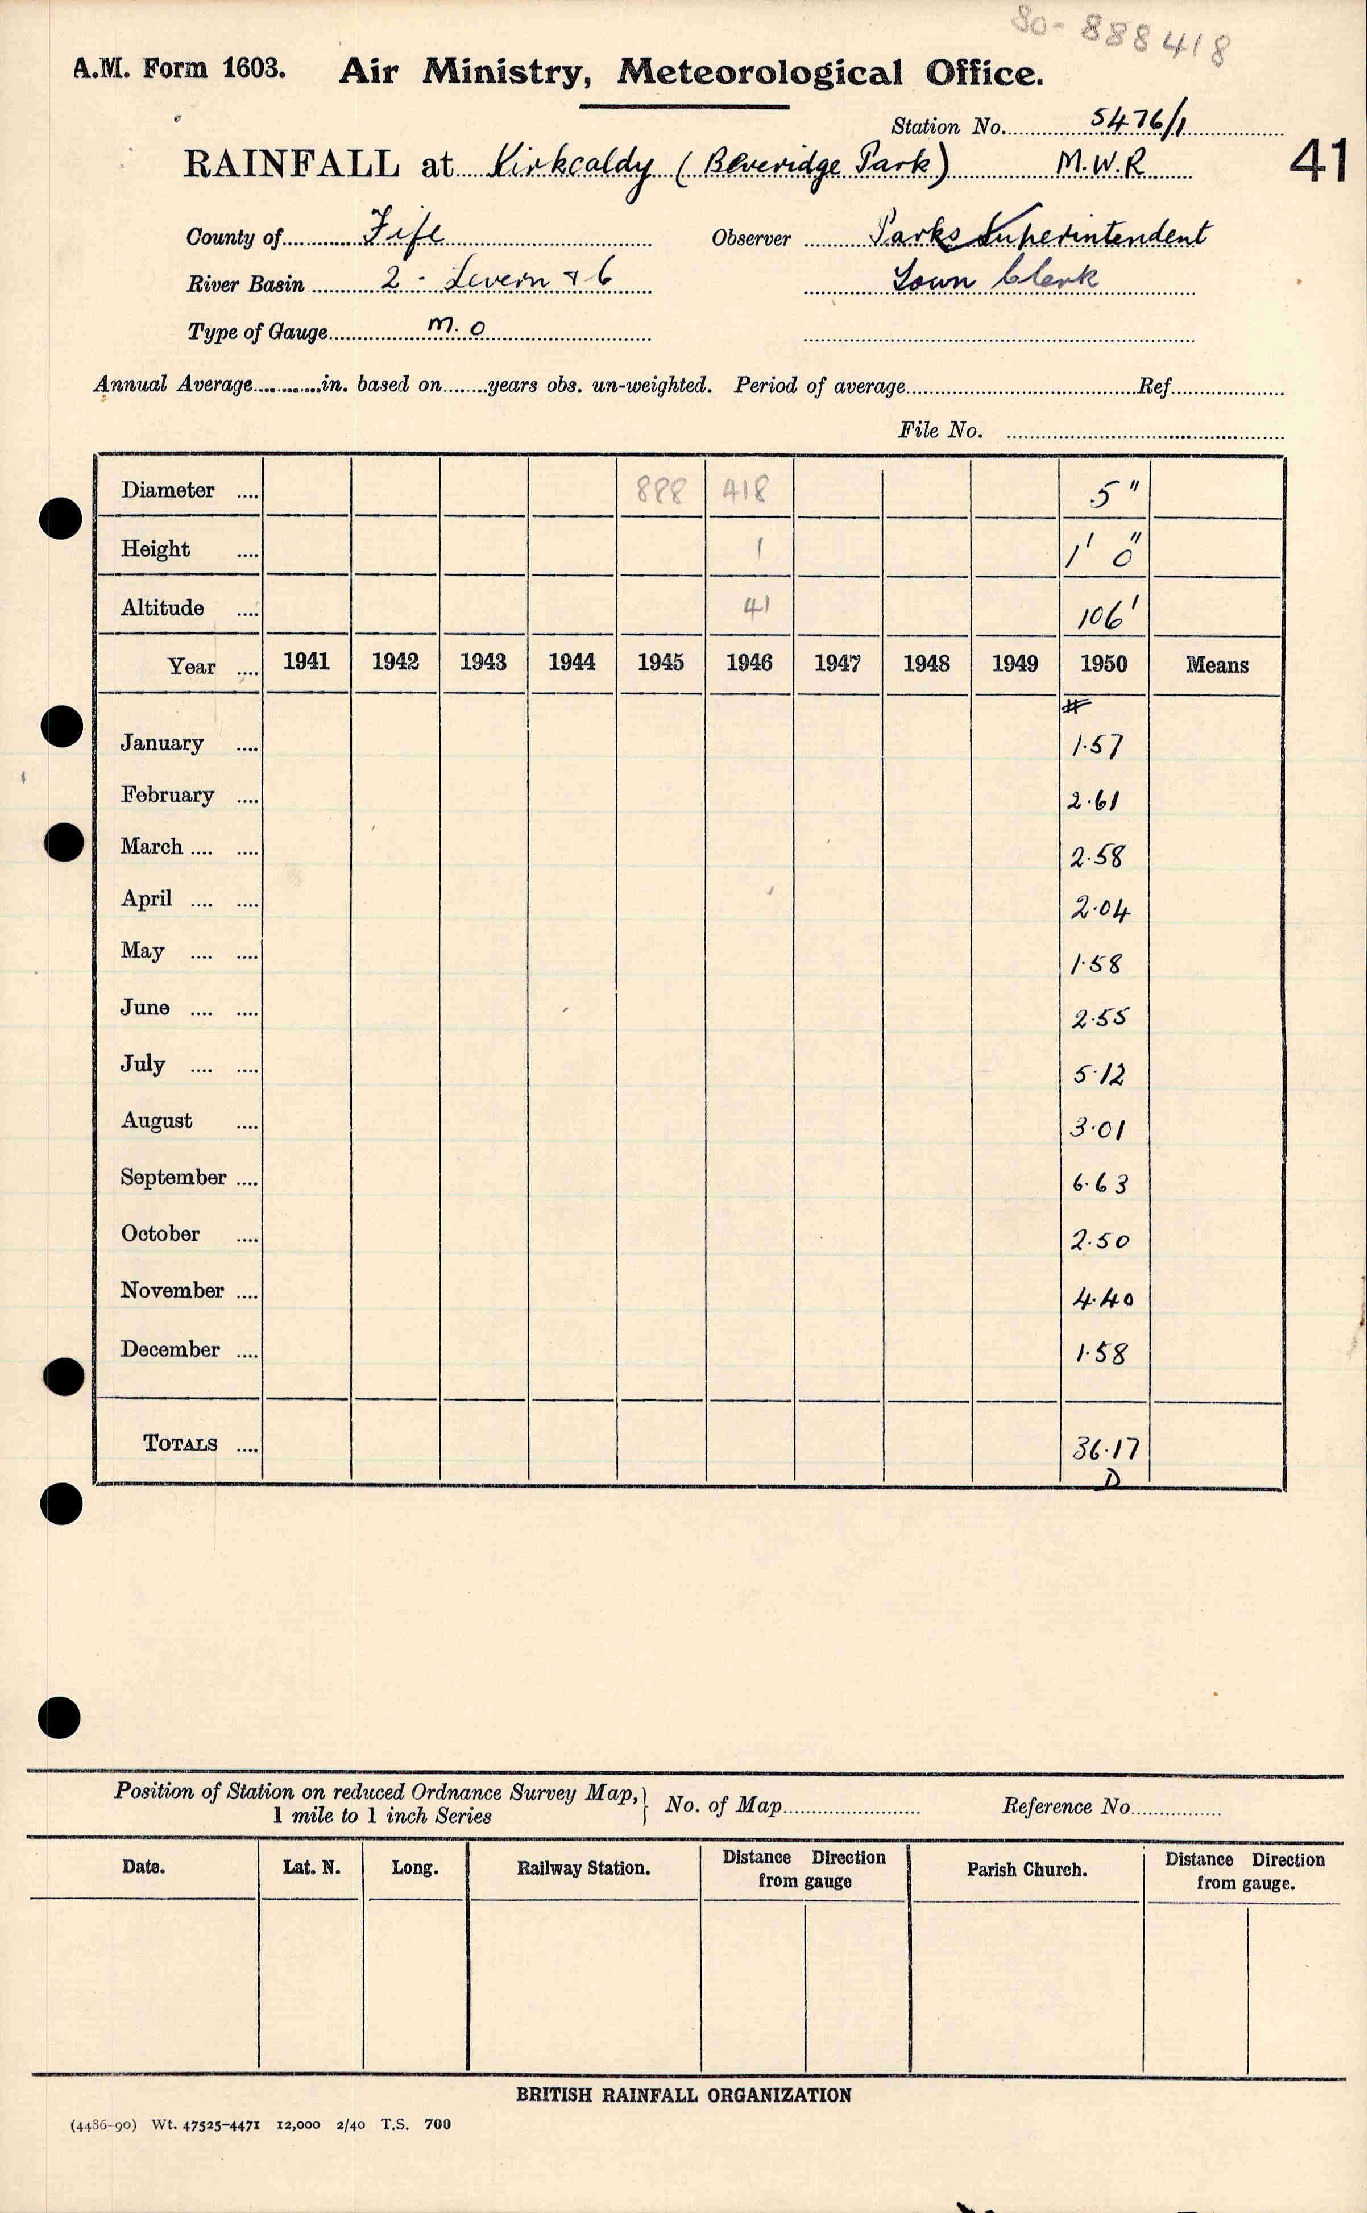 80-888418
A.M. Form 1603. Air Ministry, Meteorological Office.
Station No. 5476/1
RAINFALL at Kirkcaldy (Beveridge Park) M.W.R 41
County of Fife Observer Parks Superintendent
River Basin 2 - Levern & 6 Town Clerk
Type of Gauge M.O
Annual Average............in. based on.......years obs. un-weighted. Period of average............Ref............
File No. ............
Diameter .... 888 418 5"
Height .... 1 1' 0"
Altitude .... 41 106'
Year .... 1941 1942 1943 1944 1945 1946 1947 1948 1949 1950 Means
#
January .... 1.57
February .... 2.61
March .... .... 2.58
April .... .... 2.04
May .... .... 1.58
June .... .... 2.55
July .... .... 5.12
August .... 3.01
September .... 6.63
October .... 2.50
November .... 4.40
December .... 1.58
TOTALS .... 36.17
D
Position of Station on reduced Ordnance Survey Map, } No. of Map............ Reference No............
1 mile to 1 inch Series
Date. Lat. N. Long. Railway Station. Distance Direction from gauge Parish Church. Distance Direction from gauge.
BRITISH RAINFALL ORGANIZATION
(4486-90) Wt. 47525-4471 12,000 2/40 T.S. 700